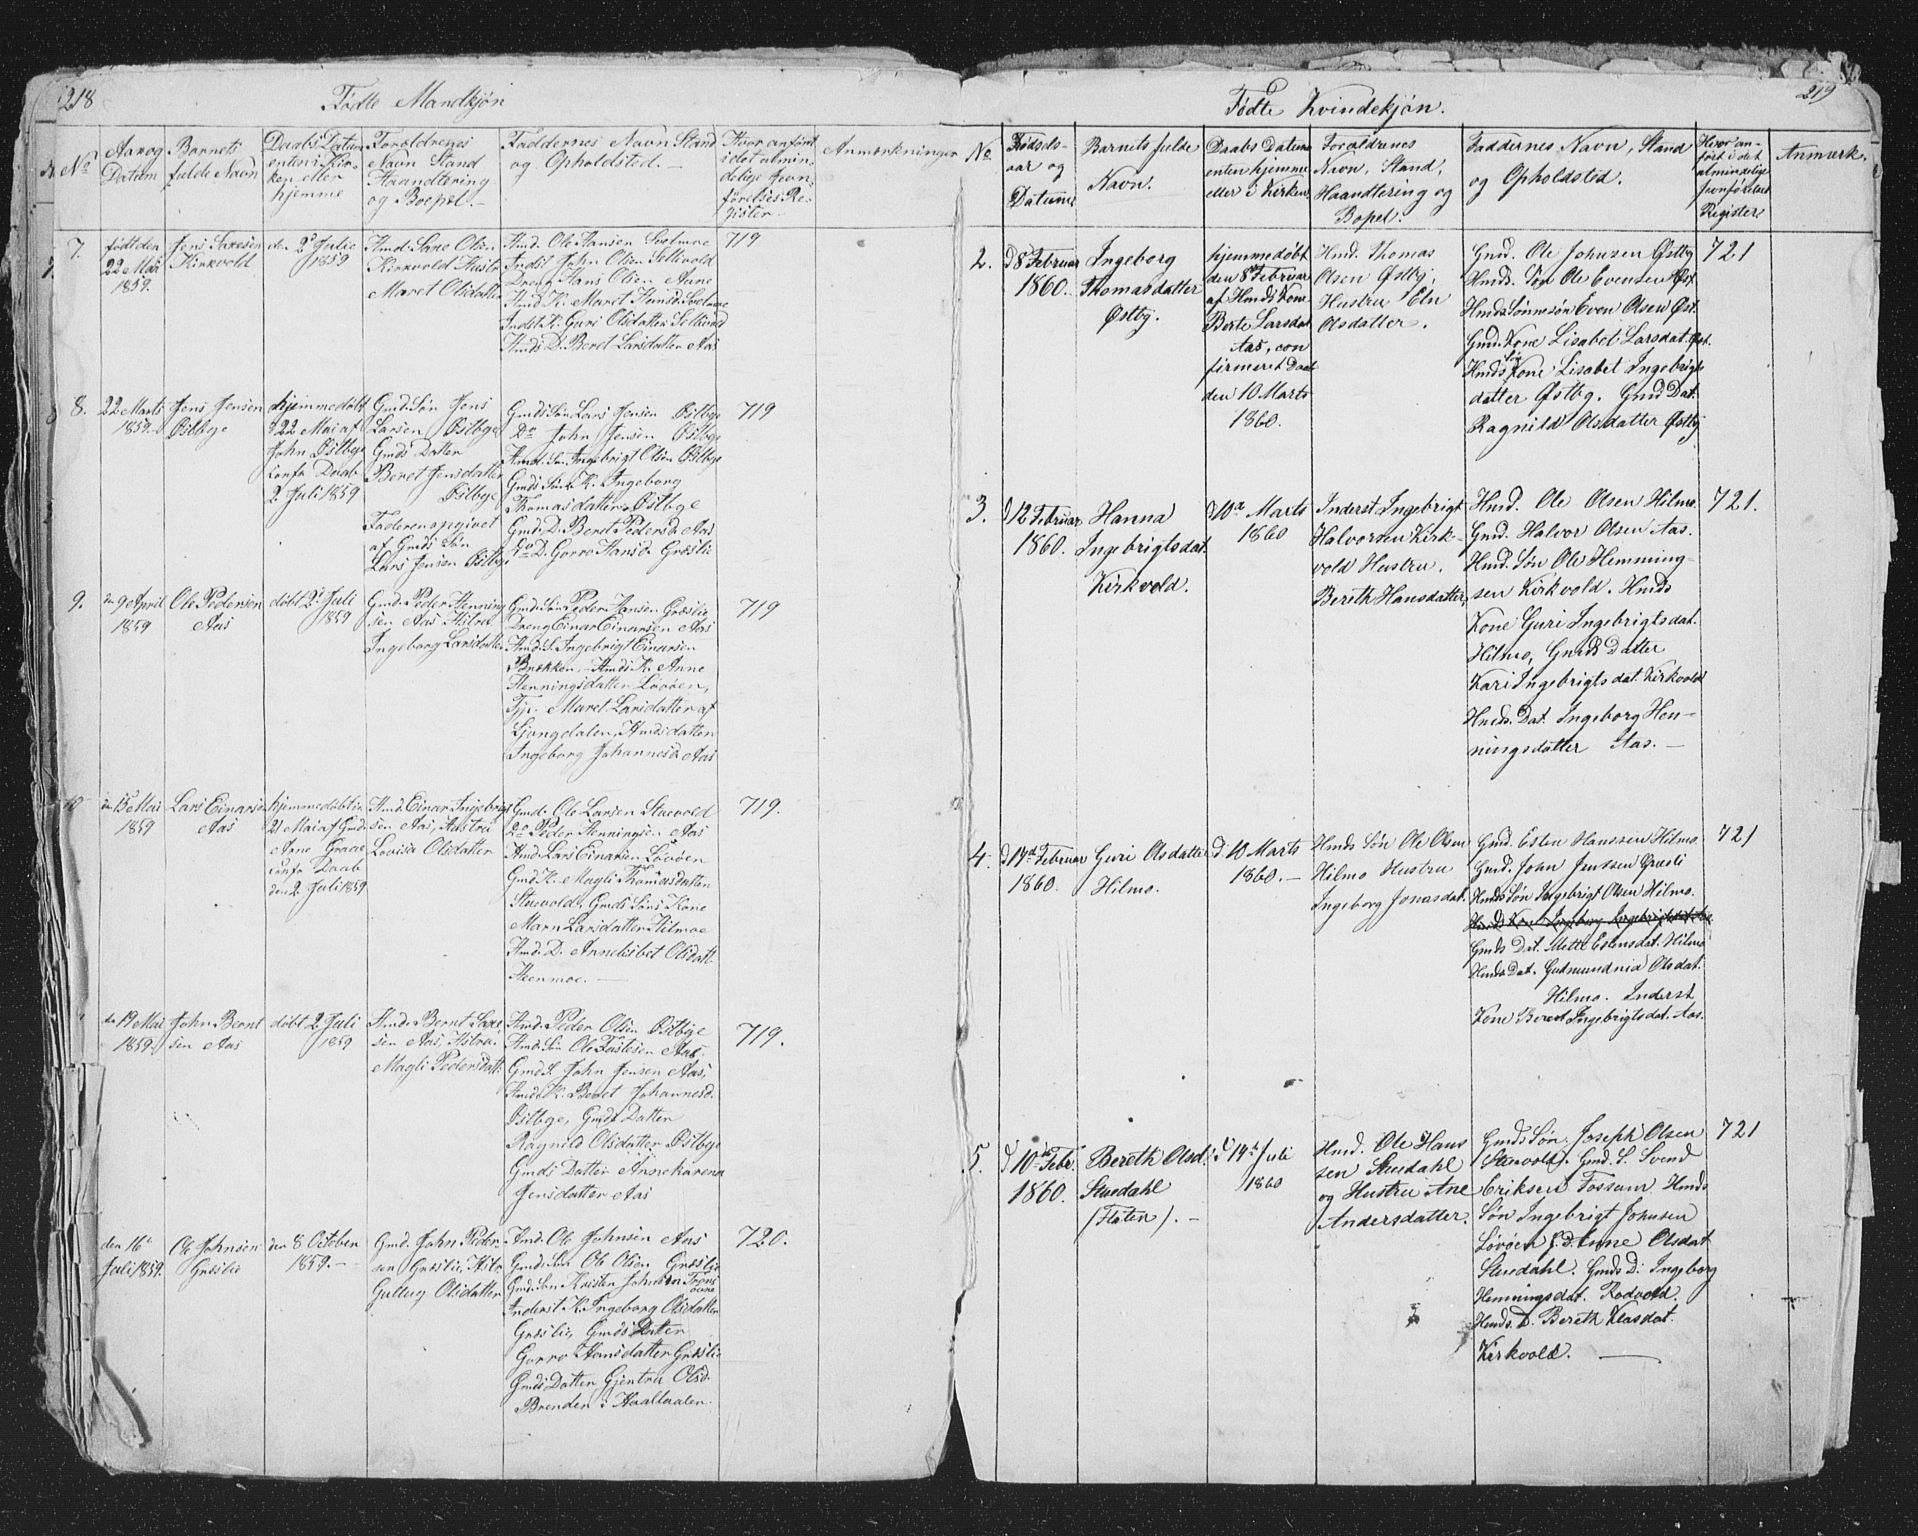 218
Fødte Mandkjøn
No
Aar og
Datum
Barnets
fulde Navn
Daabs Datum
enten i Kir-
ken eller
hjemme
Forældrenes
Navn Stand
Haandtering
og Boepel.
Faddernes Navn Stand
og Opholdsted.
Hvor anført
i det almin-
delige Jevn-
førelses Re-
gister
Anmærkninger
7.
født den
22 Mai
1859.
Jens Saxesen
Kirkvold
den 2 Julie
1859
Hmd. Saxe Olsen
Kirkvold Hustr.
Maret Olsdatter
Hmd. Ole Hansen
Indst John Olsen
Dreng Hans Olsen Aune
Hmd. K. Maret
Indst. K. Guri Olsdatter
Hmds D. Beret Larsdatter Aas
719
8.
22 Marts
1859.
Jens Jensen
Østbye
hjemmedøbt
d 22 Mai af
John Østbye
Confr Daab
2 Juli 1859
Gmd. Søn Jens
Larsen Østbye
Gmds Datter
Beret Jensdatter
Østbye
Faderen opgivet
af Gmds Søn
Lars Jensen Østbye
Gmds Søn Lars Jensen Østbye
Do John Jensen Østbye
Hmd. Søn Ingebrigt Olsen Østbye
Gmds Søns K. Ingeborg
Thomasdatter Østbye
Gmd. D. Beret Pedersd. Aas
Do D. Gorro Hansd. Græslie
719
9.
den 9 April
1859
Ole Pedersen
Aas
døbt 2 Juli
1859
Gmd. Peder Henning
sen Aas Hstru
Ingeborg Larsdatter
Gmd. Søn Peder Hansen Græslie
Dreng Einar Einarsen Aas
Hmd. S. Ingebrigt Einarsen
Brækken, Hmds K. Anne
Henningsdatter Løvøen,
Tjp. Maret Larsdatter af
Ljungdalen, Hmds datter
Ingeborg Johannesd. Aas
719
10
den 15 Mai
1859
Lars Einarsen
Aas
hjemmedøbt den
21 Mai af Gmd.
Arne Graae
confr Daab
den 2 Juli 1859
Hmd. Einar Ingebrigt
sen Aas, Hustru
Lovisa Olsdatter
Gmd. Ole Larsen Stuevold
Do Peder Henningsen Aas
Hmd. Lars Einarsen Løvøen
Gmd. K. Magli Thomasdatter
Stuevold, Gmds Søns Kone
Marn Larsdatter Hilmoe
Hmd. D. Annelisbet Olsdatt.
Stenmoe.
719.
den 19 Mai
1859.
John Bernt
sen Aas
døbt 2 Juli
1859
Hmd. Bernt Saxe
sen Aas, Hstru.
Magli Pedersdatt.
Hmd. Peder Olsen Østbye
Hmd. Søn Ole Taslesen Aas.
Gmd. S. John Jensen Aas,
Hmds K. Beret Johannesd.
Østbye, Gmds Datter
Ragnild Olsdatter Østbye
Gmds Datter Annekarena
Jensdatter Aas
719.
den 16
Juli 1859.
Ole Johnsen
Græslie
den 8 October
1859.
Gmd. John Peder-
sen Græslie, Hstr
Gullug Olsdatter
Hmd. Ole Johnsen Aas
Gmds Søn Ole Olsen Græslie
Gmd. Søn Karsten Johnsen
Inderst K. Ingeborg Olsdatter
Græslie, Gmds Datter
Gorro Hansdatter Græslie
Gmds Datter Gjentru Olsd.
Brenden i Haaltaalen
720.
219
Fødte Kvindekjøn.
No.
Fødsels-
aar og
Datum
Barnets fulde
Navn.
Daabs Datum
enten hjemme
eller i Kirken
Forældrenes
Navn, Stand,
Haandtering og
Bopel.
Faddernes Navn, Stand
og Opholdsted.
Hvor an-
ført i det
almindelige
Jevnførelses
Register
Anmærk.
2.
d 8 Februar
1860.
Ingeborg
Thomasdatter
Østby.
hjemmedøbt
den 8 Februar
af Hmds Kone
Berte Larsdat
Aas, con
firmeret Daab
den 10 Marts
1860.
Hmd. Thomas
Olsen Østby,
Hustru Eln
Olsdatter.
Gmd. Ole Johnsen Østby
Hmds. Søn Ole Evensen Øst.
Hmds Sønnesøn Even Olsen Øst.
Gmd. Kone Lisabet Larsdat. Øst.
Hmds Søn Kone Lisabet Ingebrigts
datter Østby. Gmd Dat.
Ragnild Olsdatter Østby
721
3.
d 12 Februar
1860.
Hanna
Ingebrigtsdat.
Kirkvold.
d 10 Marts
1860
Inderst Ingebrigt
Halvorsen Kirk-
vold Hustru.
Bereth Hansdatter,
Hmd. Ole Olsen Hilmo.
Gmd. Halvor Olsen Aas.
Hmd. Søn Ole Hemming-
sen Kirkvold. Hmds
Kone Guri Ingebrigtsdat.
Hilmo, Gmds Datter
Kari Ingebrigtsdat. Kirkvold
Hmds. Dat. Ingeborg Hen-
ningsdatter Aas.
721.
4.
d 17 Februar
1860.
Guri Olsdatter
Hilmo.
d. 10 Marts
1860.
Hmds Søn Ole Olsen
Hilmo Hustru
Ingeborg Jonasdat.
Gmd. Esten Hanssen Hilmo.
Gmd. John Jenssen Græsli
Hmds Søn Ingebrigt Olsen Hilmo.
Gmds Dat. Mette Estensdat. Hilmo
Hmds Dat. Gudmundnia Olsdat.
Hilmo. Inderst
Kone Beret Ingebrigtsdat. Aas.
721
5.
d 10 Febr.
1860.
Bereth Olsd.
Stuedahl
(Flaten).
d 14 Juli
1860
Hmd. Ole Hans
sen Stuedahl
og Hustru Ane
Andersdatter.
Gmds Søn. Joseph Olsen
Stuevold. Gmd. S. Svend
Eriksen Fossum. Hmds
Søn Ingebrigt Johnsen
Løvøen Anne Olsdat
Stuedahl. Gmds D. Ingeborg
Henningsdat. Rodvold.
Hmds. D. Bereth Klasdat.
Kirkvold.
721